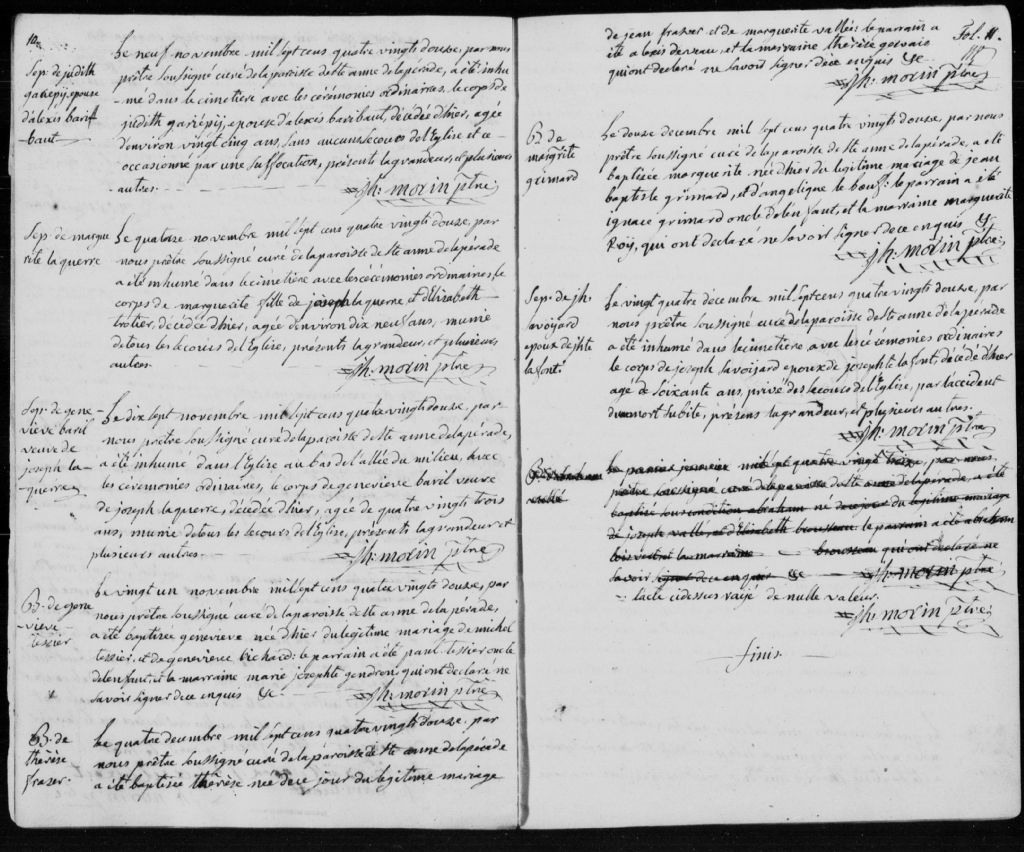 10e
Sep: de judith
gariépÿ epouse
d'alexis barif
baut
Le neuf novembre mil sept cens quatre vingts douze, par nous
prêtre soussigné curé de la paroisse de ste anne de la pérade, a été inhu
-mé dans le cimetière avec les cérémonies ordinaires, le corps de
judith gariépÿ, epouse d'alexis baribaut, décédée d'hier, agée
d'environ vingt cinq ans, sans aucuns secours de l'Eglise et ce
occasionné par une suffocation, présents lagrandeur, et plusieurs
autres.
jh: morin ptre
Sep: de margue
rite la guerre
Le quatorze novembre mil sept cens quatre vingts douze, par
nous prêtre soussigné curé de la paroisse de ste anne de la pérade
a été inhumé dans le cimetière avec les cérémonies ordinaires, le
corps de marguerite fille de joseph la guerre, et d'Elizabeth
trotier, décédée d'hier, agée d'environ dix neuf ans, munie
de tous les secours de l'Eglise, présents lagrandeur, et plusieurs
autres.
jh: morin ptre
Sep: de gene
vieve baril
veuve de
joseph la-
guerre
Le dix sept novembre mil sept cens quatre vingts douze, par
nous prêtre soussigné curé de la paroisse de ste anne de la pérade,
a été inhumé dans l'Eglise au bas de l'allée du milieu, avec
les cérémonies ordinaires, le corps de genevieve baril veuve
de joseph la guerre, décédée d'hier, agée de quatre vingts trois
ans, munie de tous les secours de l'Eglise, présents lagrandeur et
plusieurs autres.
jh: morin ptre
B. de gene
vieve
tessier
Le vingt un novembre mil sept cens quatre vingts douze, par
nous prêtre soussigné curé de la paroisse de ste anne de la pérade,
a été baptisée genevieve née d'hier du légitime mariage de michel
tessier, et de genevieve richard: le parrain a été paul tessier oncle
de l'enfant, et la marraine marie josephte gendron, qui ont declaré ne
savoir signer de ce enquis &c
jh: morin ptre
B. de
thérèse
frazer
Le quatre decembre mil sept cens quatre vingts douze, par
nous prêtre soussigné curé de la paroisse de ste anne de la pérade
a été baptisée thérèse née de ce jour du légitime mariage
Fol. 11.
de jean frazer et de marguerite vallée: le parrain a
été alexis deveau, et la marraine thérèse gervais
qui ont declaré ne savoir signer de ce enquis &c
jh: morin ptre
B. de
margrite
grimard
Le douze decembre mil sept cens quatre vingts douze, par nous
prêtre soussigné curé de la paroisse de ste anne de la pérade, a été
baptisée marguerite née d'hier du légitime mariage de jean
baptiste grimard, et d'angelique le bœuf: le parrain a été
ignace grimard oncle de l'enfant, et la marraine marguerite
Roÿ, qui ont declaré ne savoir signer de ce enquis &c
jh: morin ptre
Sep: de jh.
savoyard
epoux de jhte
la font
Le vingt quatre décembre mil sept cens quatre vingts douze, par
nous prêtre soussigné curé de la paroisse de ste anne de la pérade
a été inhumé dans le cimetière avec les cérémonies ordinaires
le corps de joseph savoijard epoux de josephte la font, décédé d'hier
agé de soixante ans, privé des secours de l'Eglise, par l'accident
d'une mort subite, présens lagrandeur, et plusieurs autres.
jh: morin ptre
B. d'abraham
vallé
Le premier janvier mil sept quatre vingt treize, par nous
prêtre soussigné curé de la paroisse de ste anne de la perade, a été
baptisé sous condition abraham né de ce jour du légitime mariage
de joseph vallé, et d'Elizabeth brousseau: le parrain a été abraham
et la marraine brousseau qui ont declaré ne
savoir signer de ce enquis &c jh: morin ptre
l'acte ci dessus rayé de nulle valeur.
jh: morin ptre
finis